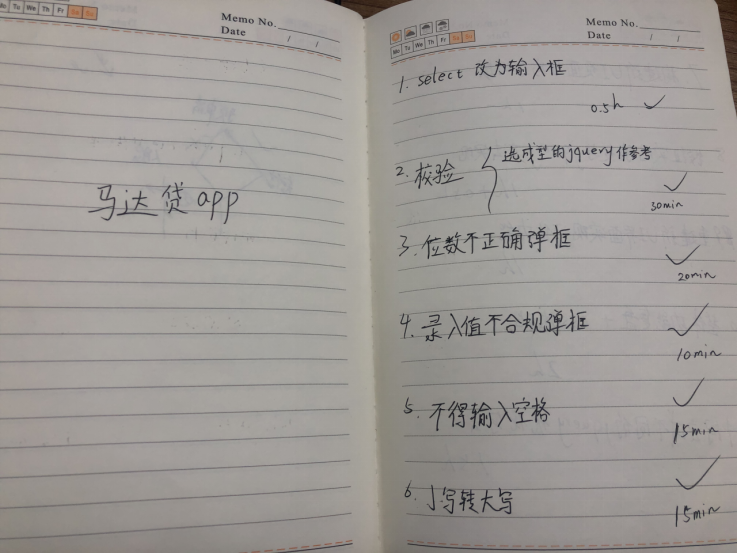 Mo Tu We Th Fr Sa Su
Memo No.
Date / /
马达贷 app
Mo Tu We Th Fr Sa Su
Memo No.
Date / /
1. select 改为输入框
0.5h ✓
2. 校验 { 选成型的jquery作参考
✓
30min
3. 位数不正确弹框
✓
20min
4. 录入值不合规弹框
✓
10min
5. 不得输入空格
✓
15min
6. 小写转大写
✓
15min